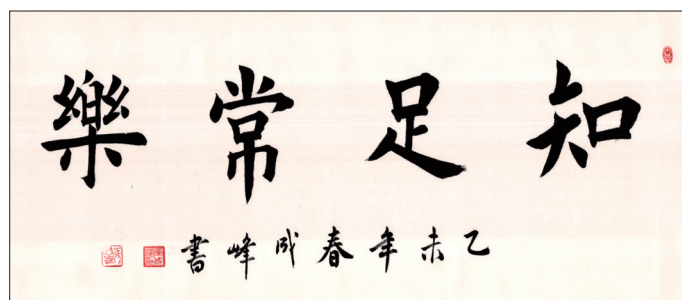 知足常樂
乙未年春成峰書